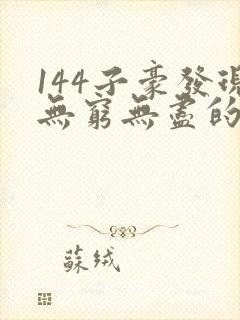 144子豪發現
無窮無盡的
蘇绒